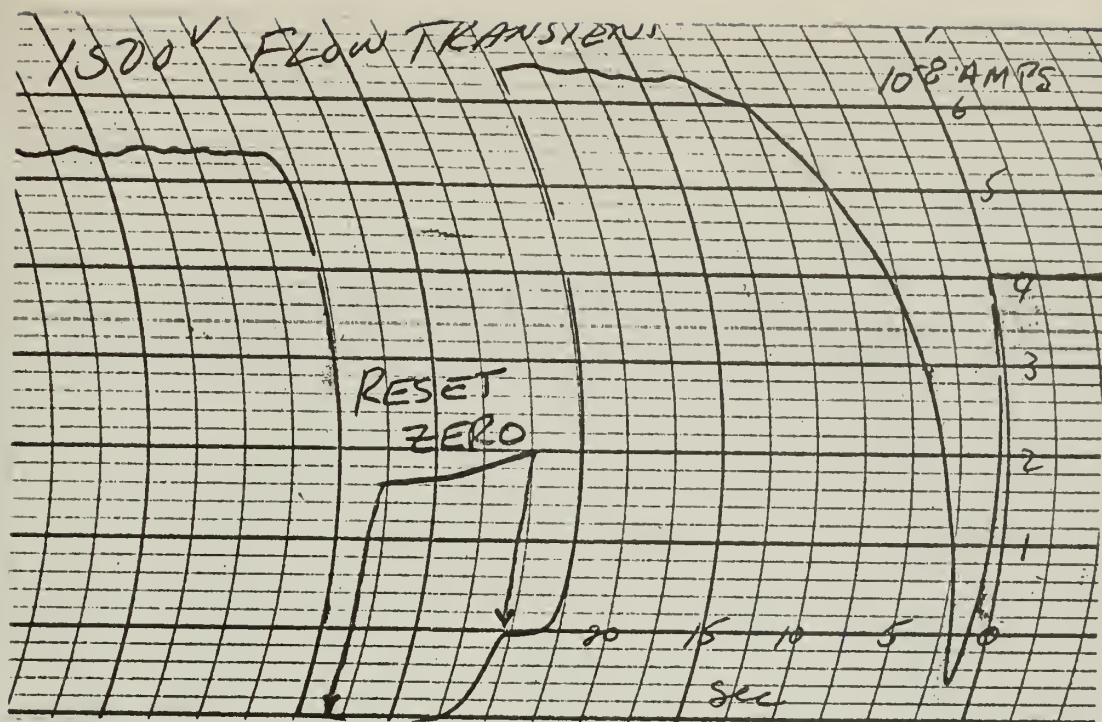 1500 V FLOW TRANSIENT
10-8 AMPS
6
5
4
3
RESET
ZERO
2
1
20 15 10 5 0
sec